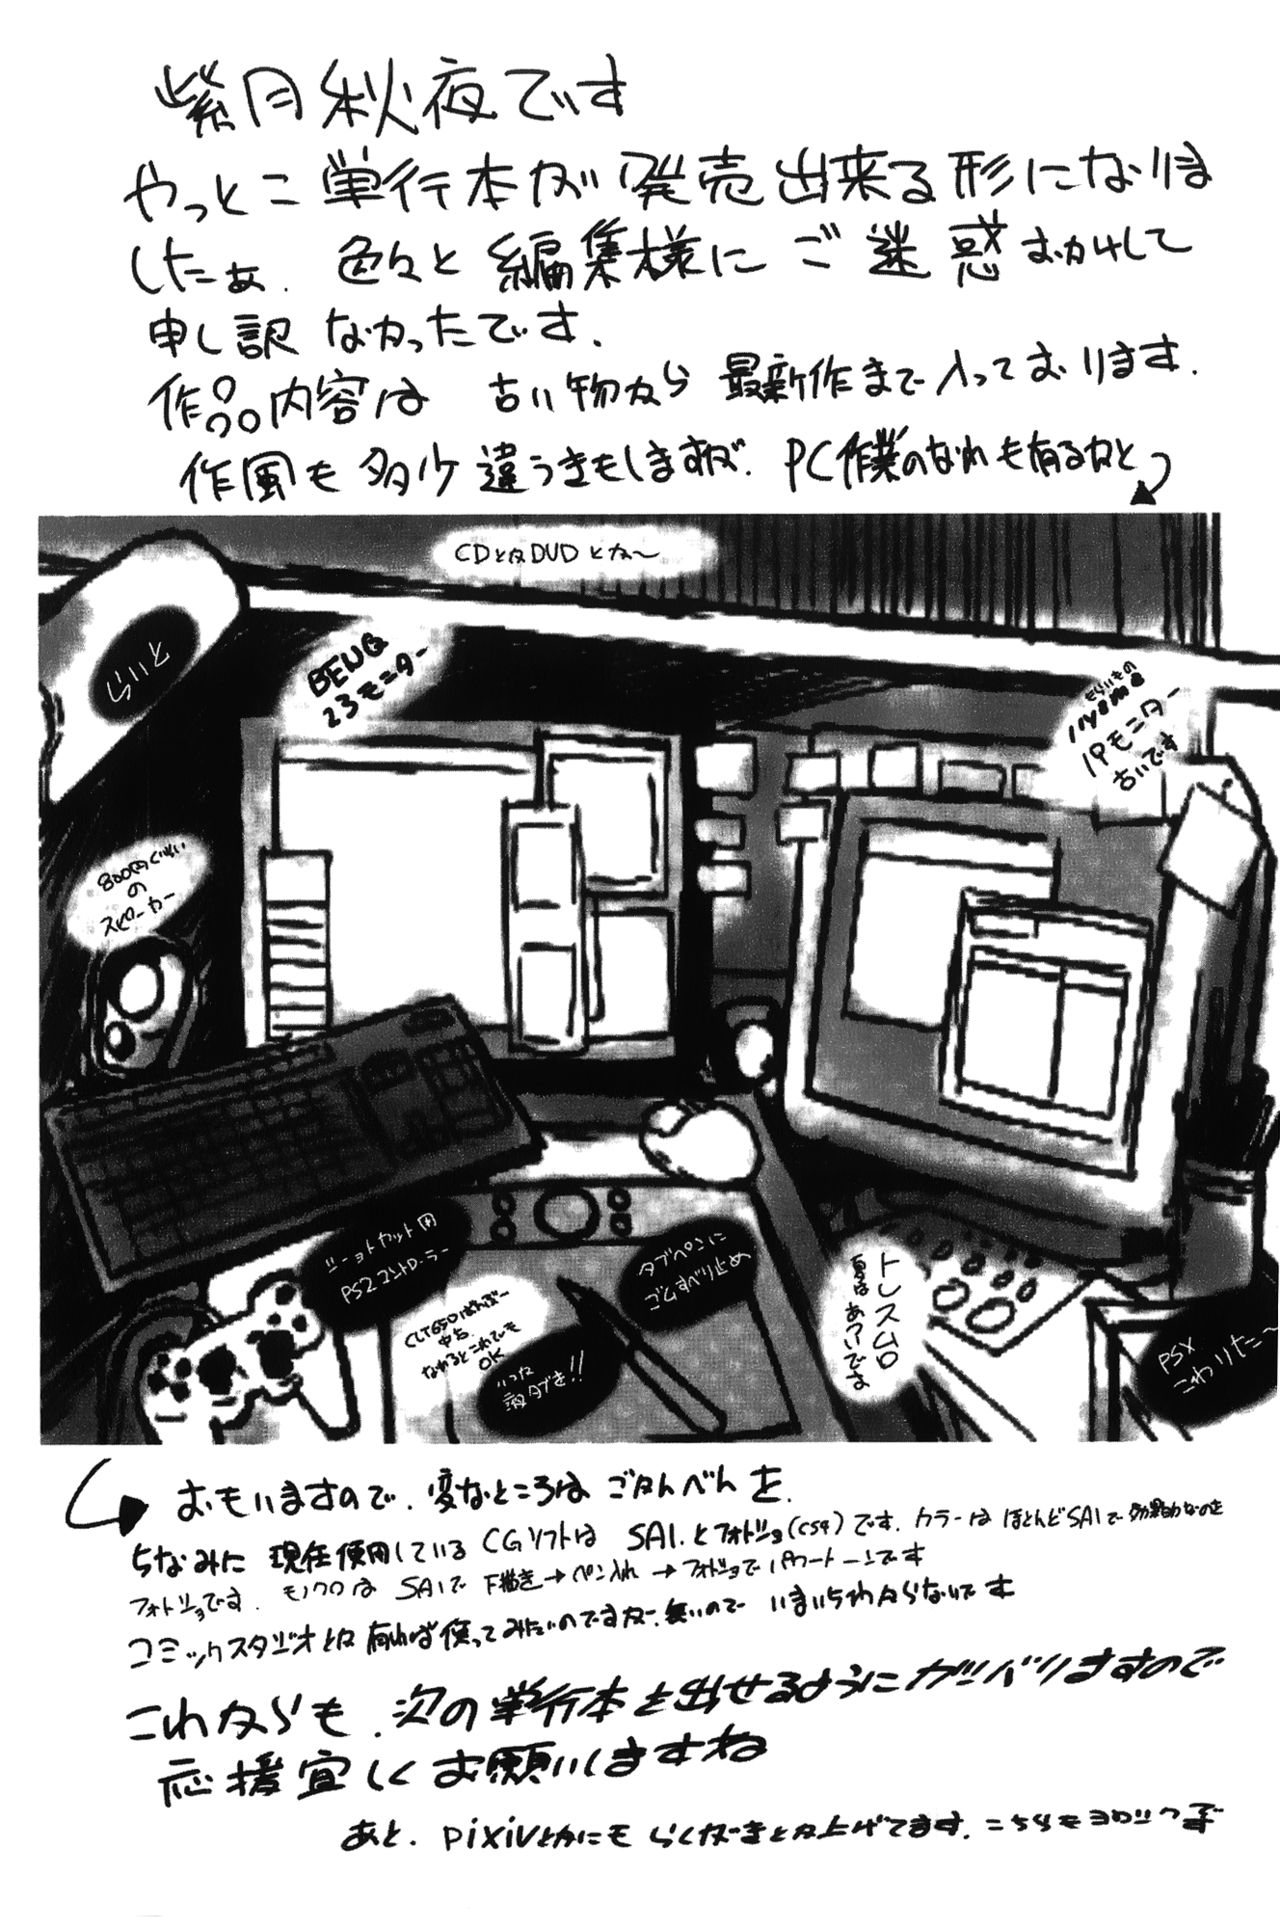 紫月秋夜です
やっとこ 単行本が 発売出来る形になりま
したぁ. 色々と 編集様に ご迷惑おかけして
申し訳 なかったです.
作品内容は 古い物から 最新作まで入っております.
作風も 多少 違うきもしますが. PC作業のなれも有るかと
CDとかDVDとか〜
らいと
BENQ
23モニター
もらいもの
iiyama
19モニター
古いです
800円くらい
の
スピーカー
ショートカット用
PS2コントローラー
タブペンに
ゴムすべり止め
CLT650ばんぼー
なれるとこれでも
OK
いつか
液タブを!!
トレス台
夏はあついです
PSX
こわれた〜
おもいますので. 変なところは ごかんべんを.
ちなみに 現在使用しているCGソフトは SAI.とフォトショ(CS4)です. カラーは ほとんどSAIで 効果的なのを
フォトショです. モノクロは SAIで 下描き→ペン入れ→フォトショでパワートーンです
コミックスタジオとか 有れば使ってみたいのですが. 無いので いまいちわからないです
これからも. 次の単行本を出せるようにガンバリますので
応援宜しくお願いしますね
あと. pixivとかにも らくがきとか上げてます. こちらもヨロシクっす